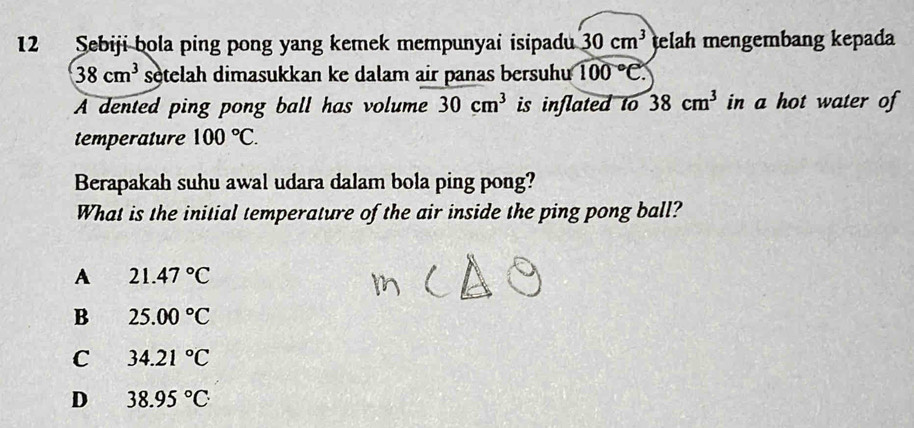 12 Sebiji bola ping pong yang kemek mempunyai isipadu 30 cm³ telah mengembang kepada
38 cm³ setelah dimasukkan ke dalam air panas bersuhu 100 °C.
A dented ping pong ball has volume 30 cm³ is inflated to 38 cm³ in a hot water of
temperature 100 °C.
Berapakah suhu awal udara dalam bola ping pong?
What is the initial temperature of the air inside the ping pong ball?
A 21.47 °C
m c Δ θ
B 25.00 °C
C 34.21 °C
D 38.95 °C